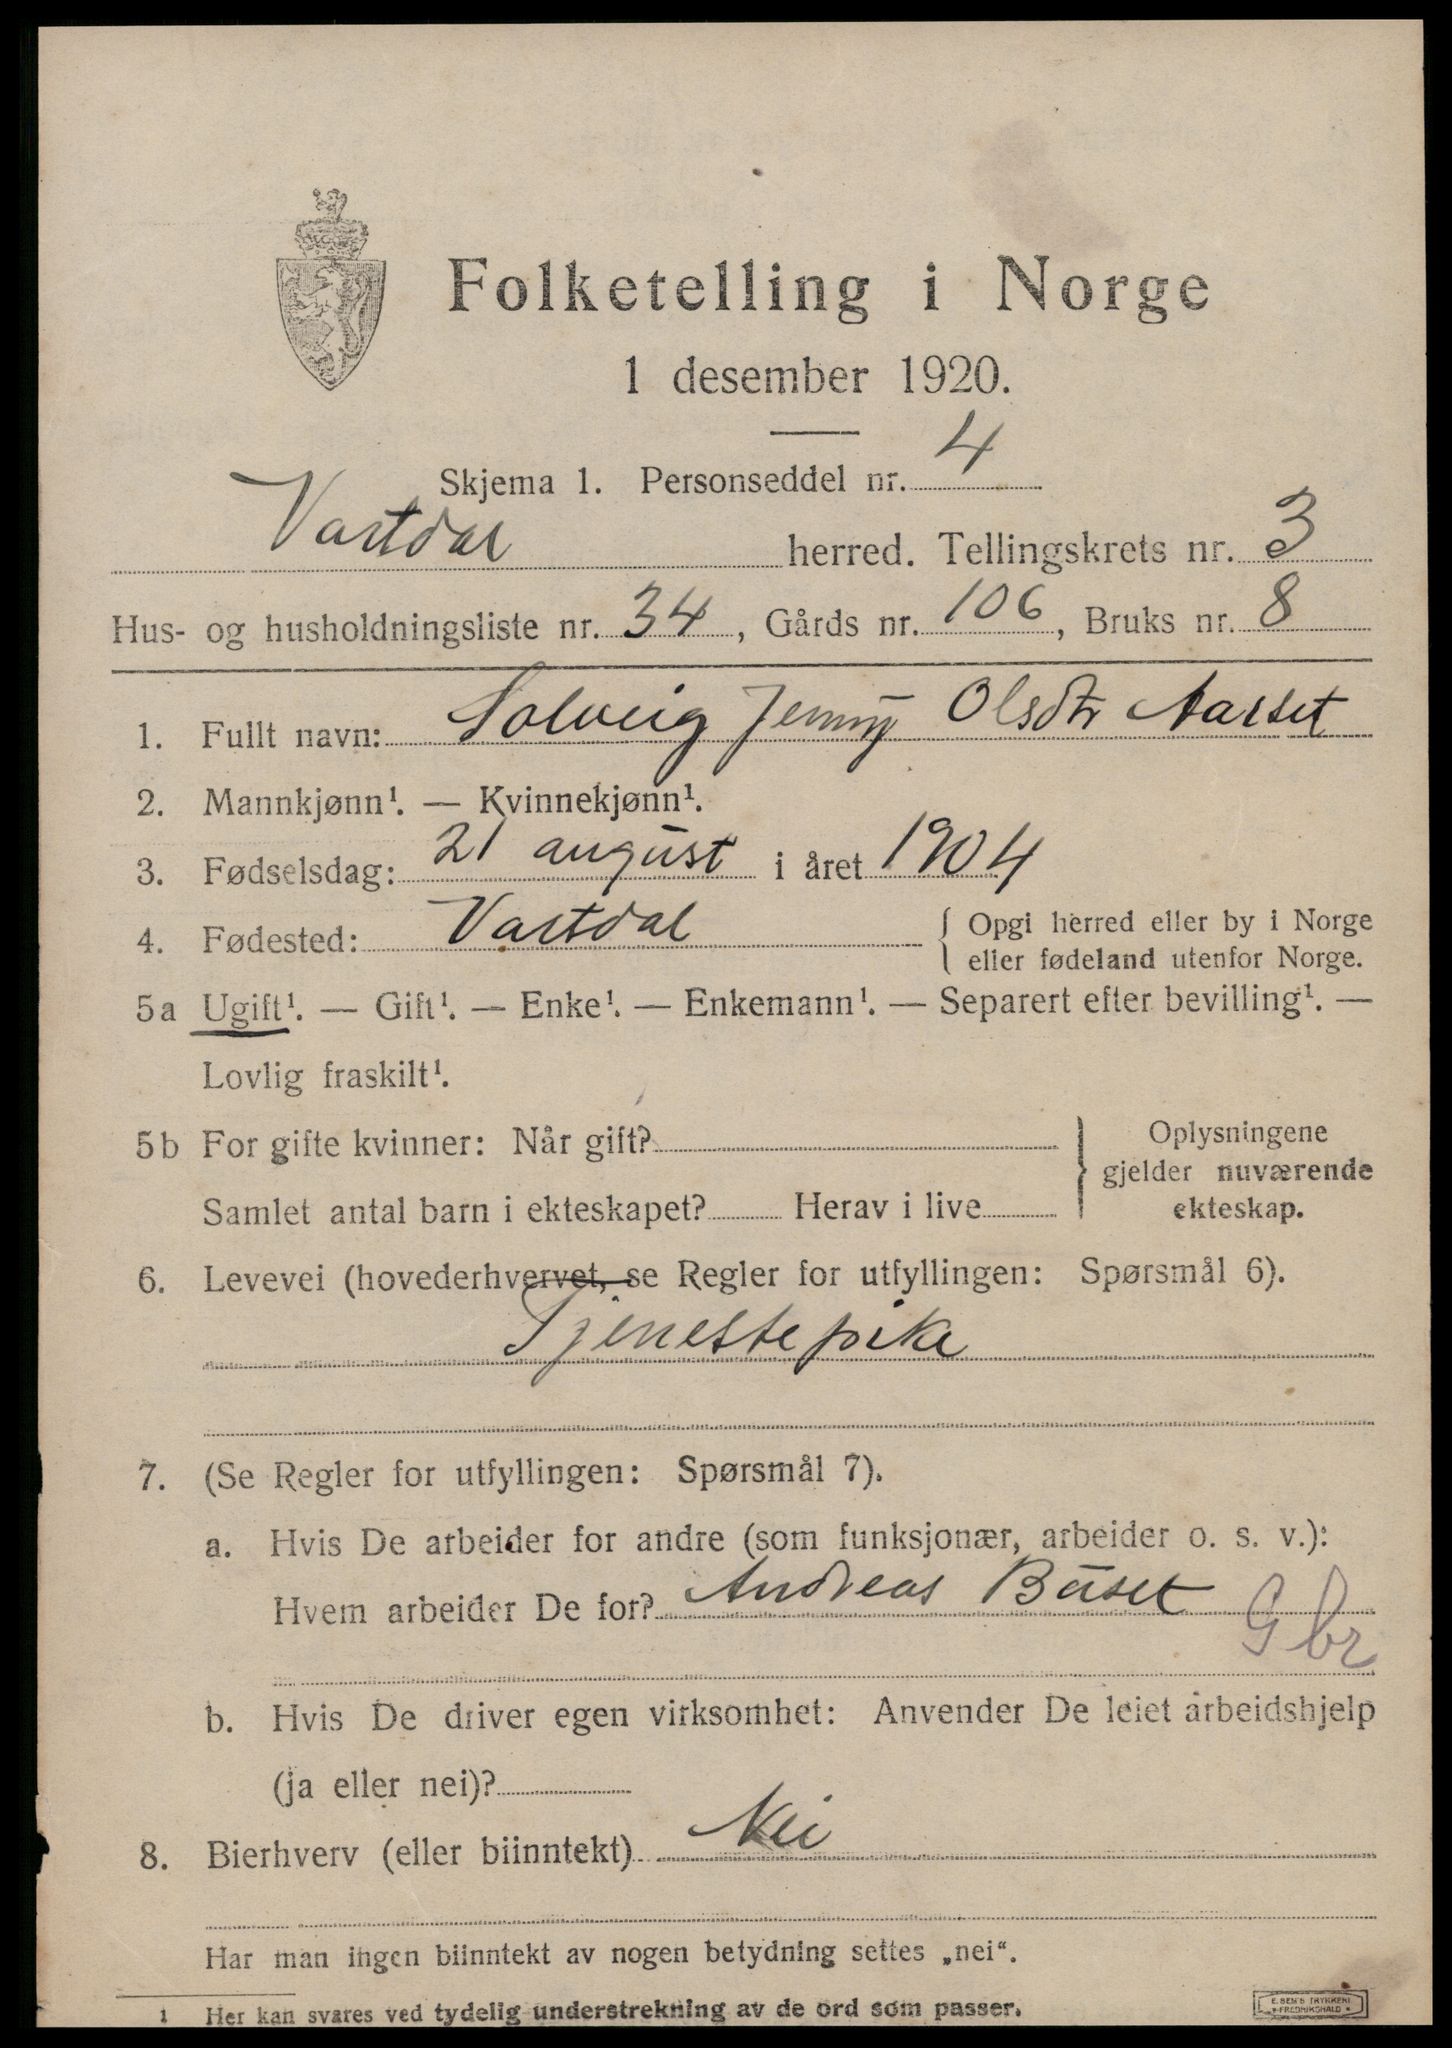 Folketelling i Norge
1 desember 1920.
Skjema 1. Personseddel nr. 4
Vartdal herred. Tellingskrets nr. 3
Hus- og husholdningsliste nr. 34, Gårds nr. 106, Bruks nr. 8
1. Fullt navn: Solveig Jenny Olsdtr Aarset
2. Mannkjønn¹. — Kvinnekjønn¹.
3. Fødselsdag: 21 august i året 1904
4. Fødested: Vartdal { Opgi herred eller by i Norge
eller fødeland utenfor Norge.
5a Ugift¹. — Gift¹. — Enke¹. — Enkemann¹. — Separert efter bevilling¹. —
Lovlig fraskilt¹.
5b For gifte kvinner: Når gift? } Oplysningene
gjelder nuværende
Samlet antal barn i ekteskapet? Herav i live ekteskap.
6. Levevei (hovederhvervet, se Regler for utfyllingen: Spørsmål 6).
Tjenestepike
7. (Se Regler for utfyllingen: Spørsmål 7).
a. Hvis De arbeider for andre (som funksjonær, arbeider o. s. v.):
Hvem arbeider De for? Andreas Búset
Gbr
b. Hvis De driver egen virksomhet: Anvender De leiet arbeidshjelp
(ja eller nei)?
8. Bierhverv (eller biinntekt) Nei
Har man ingen biinntekt av nogen betydning settes „nei“.
1 Her kan svares ved tydelig understrekning av de ord som passer.
E. SEM'S TRYKKERI
FREDRIKSHALD